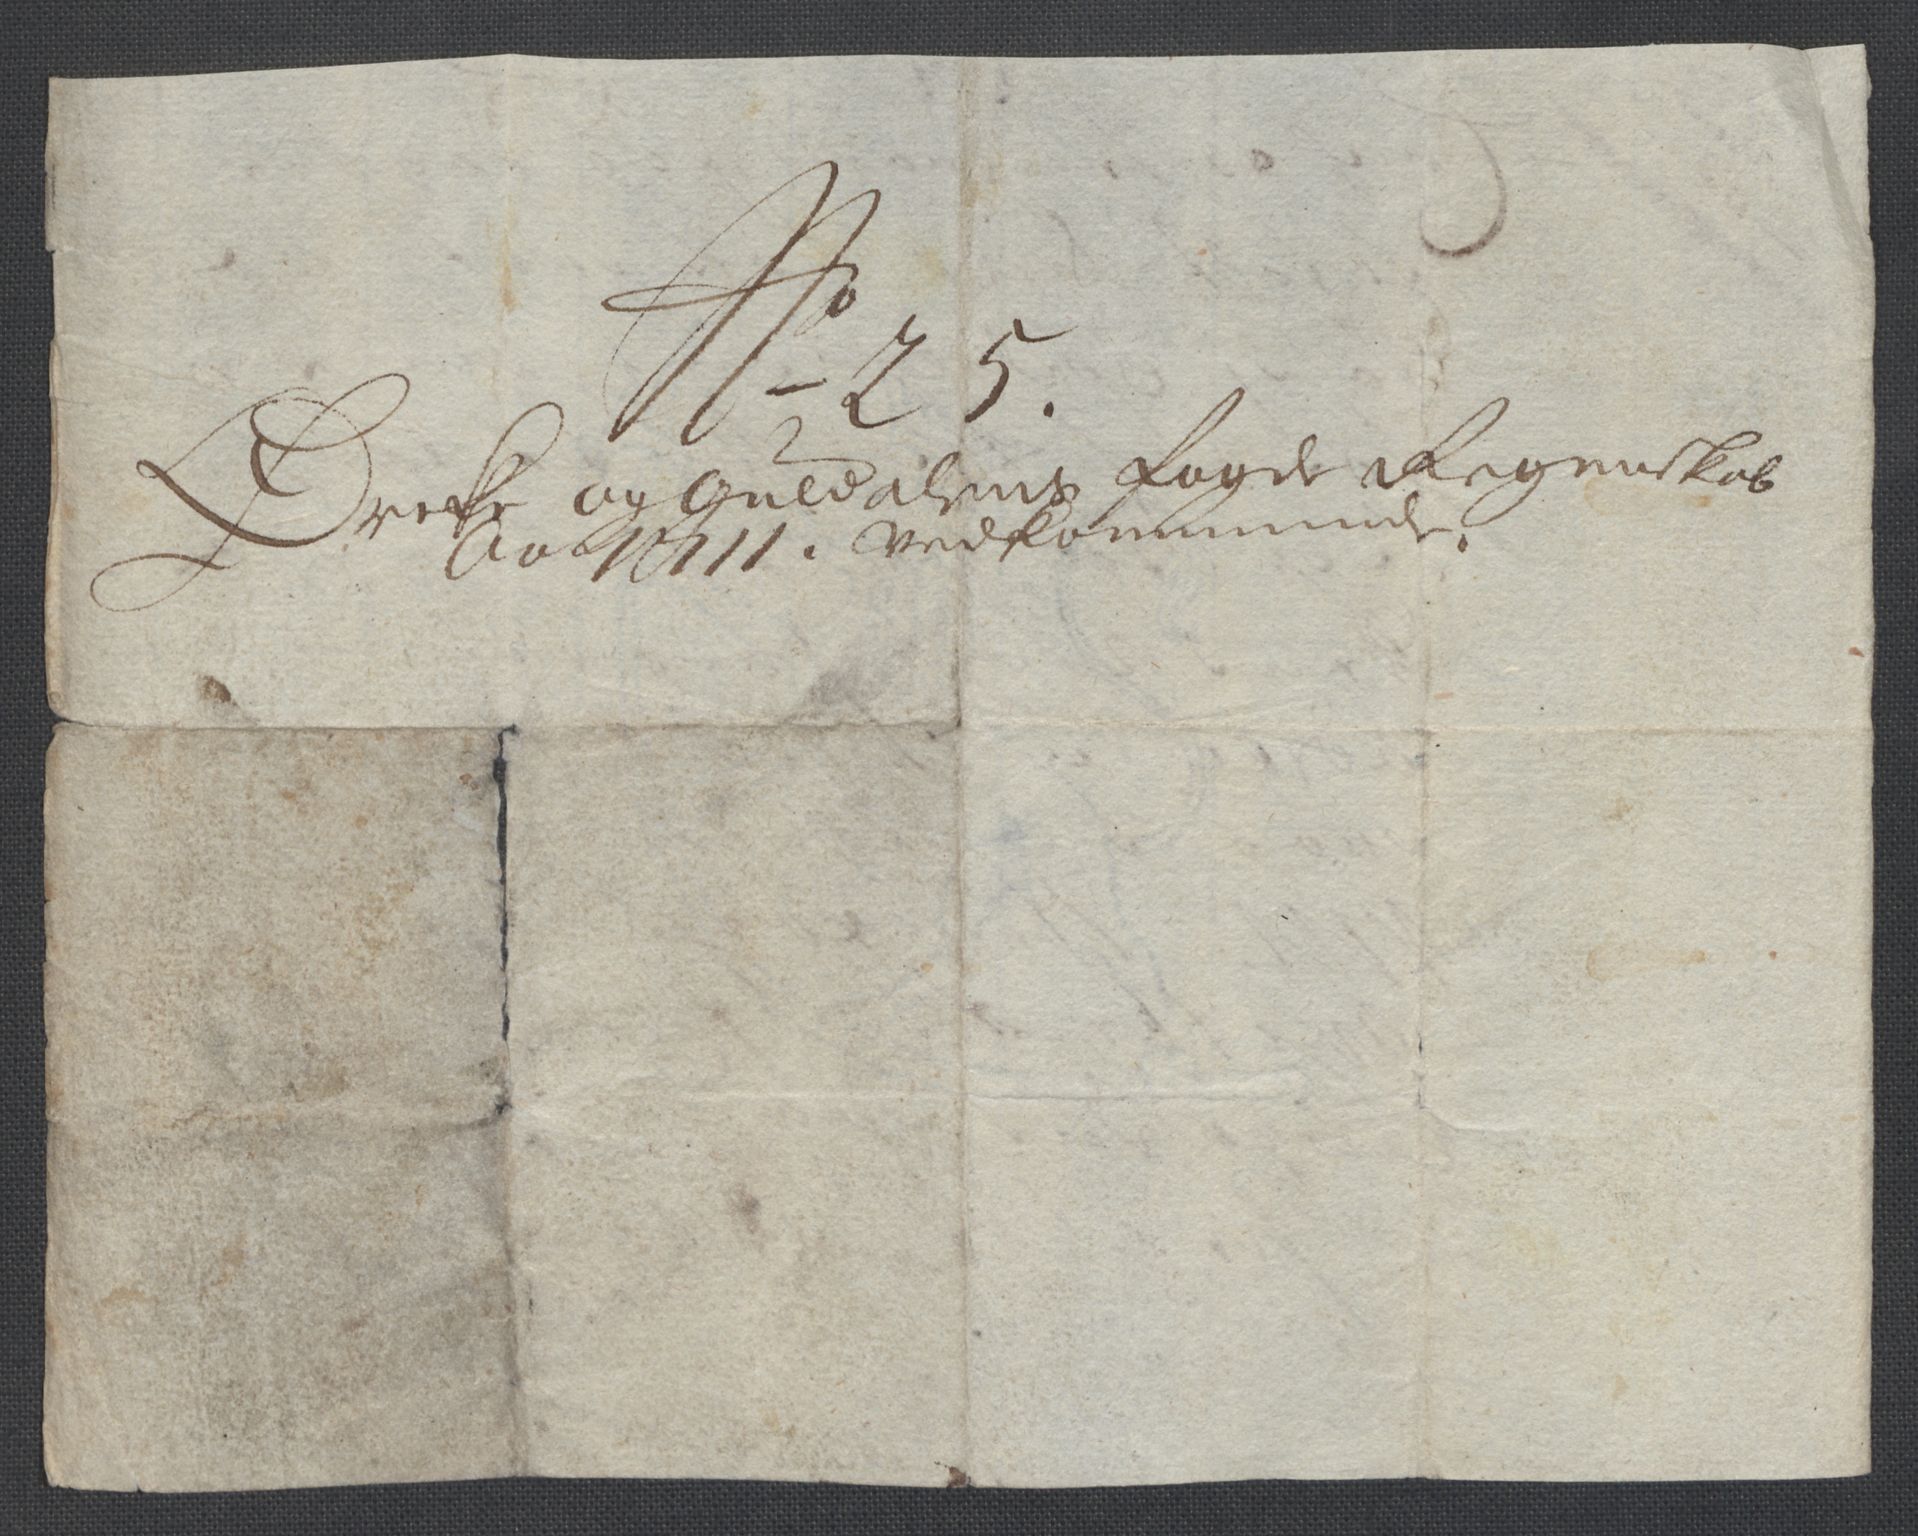 No 25.
Orcke og Guldalens fogde Regenskab
Ao 1711. vedkommende.